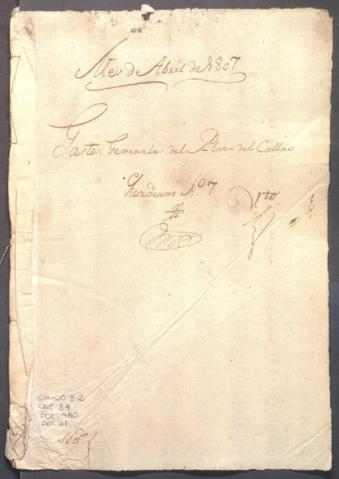 Mes de Abril de 1807
Gastos Generales del Plaza del Callao
Quaderno N.º 7
GM-CO 3-2
CAJ. 34
DOC. 480